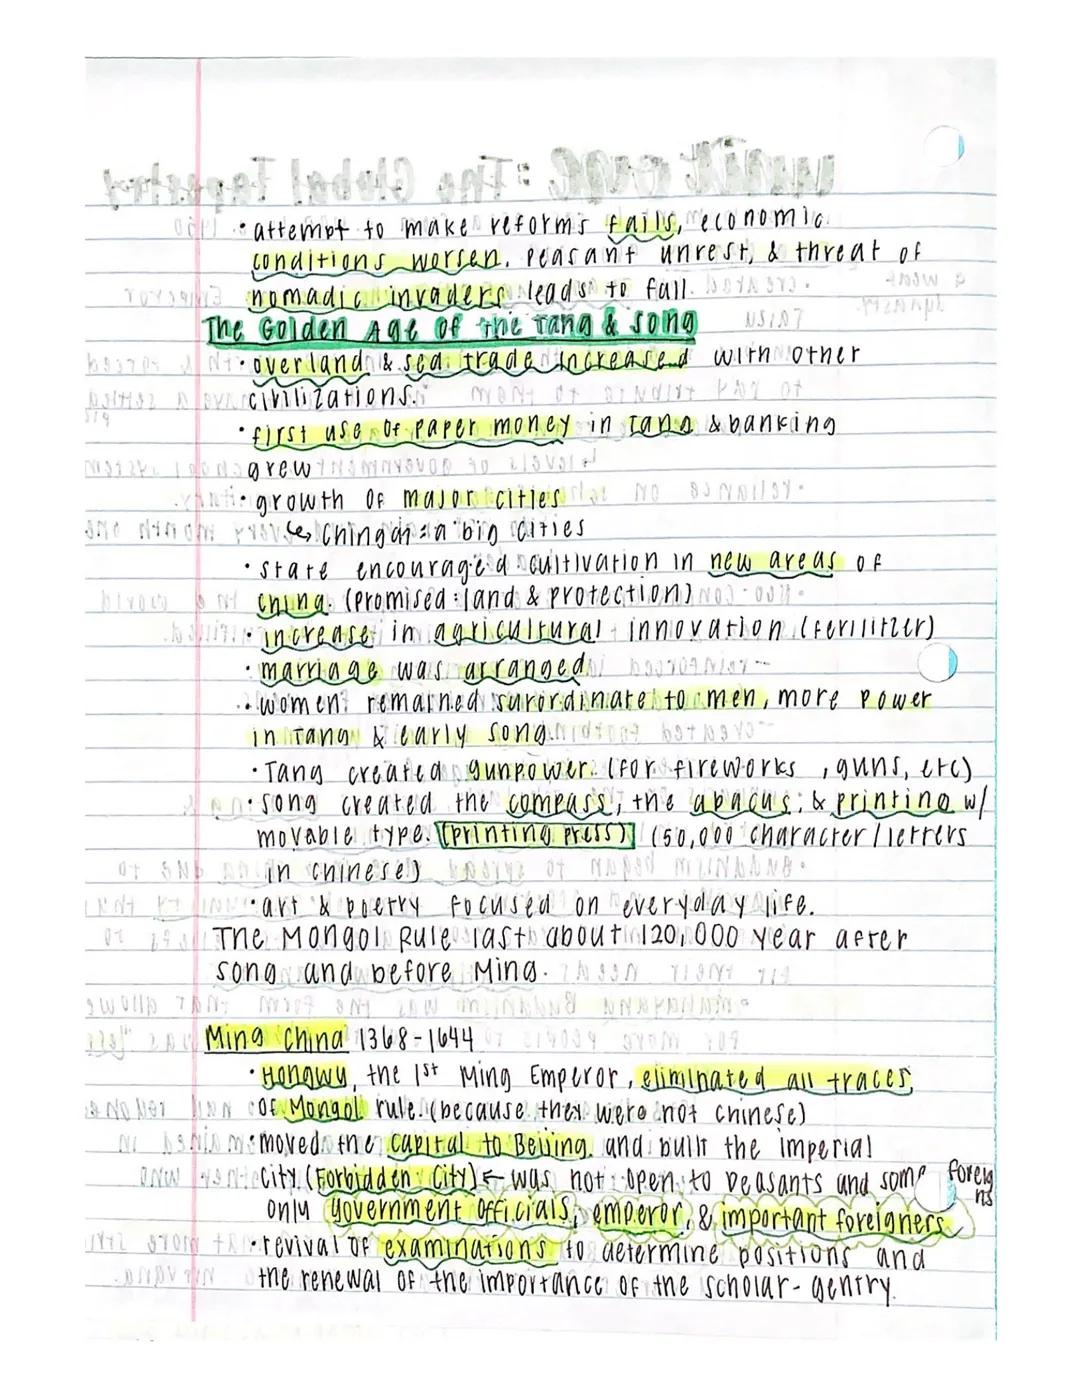 • attempt to make reforms fails, economic
conditions worsen. Peasant unrest, & threat of
nomadic invaders leads to fall.
The Golden Age of the Tang & Song
• overland & sea trade increased with other
civilizations.
• first use of paper money in Tang & banking
grew
• growth of major cities
↳ a big cities
• state encouraged cultivation in new areas of
China. (promised: land & protection)
• increase in agricultural innovation (ferilitzer)
• marriage was arranged
• women remained surordinate to men, more power
in Tang & early Song.
• Tang created gunpower. (for fireworks, guns, etc)
• Song created the compass, the abacus, & printing w/
movable type. (printing press) (50,000 character/letters
in chinese)
• art & poetry focused on everyday life.
The Mongol Rule last about 120,000 year after
song and before Ming.
Ming China 1368-1644
• Hongwu, the 1st Ming Emperor, eliminated all traces
of Mongol rule. (because they were not chinese)
• moved the capital to Beijing and built the imperial
city. (Forbidden City) ← was not open to peasants and some foreigns
only government officials, emperor, & important foreigners
• revival of examinations to determine positions and
the renewal of the importance of the scholar-gentry.